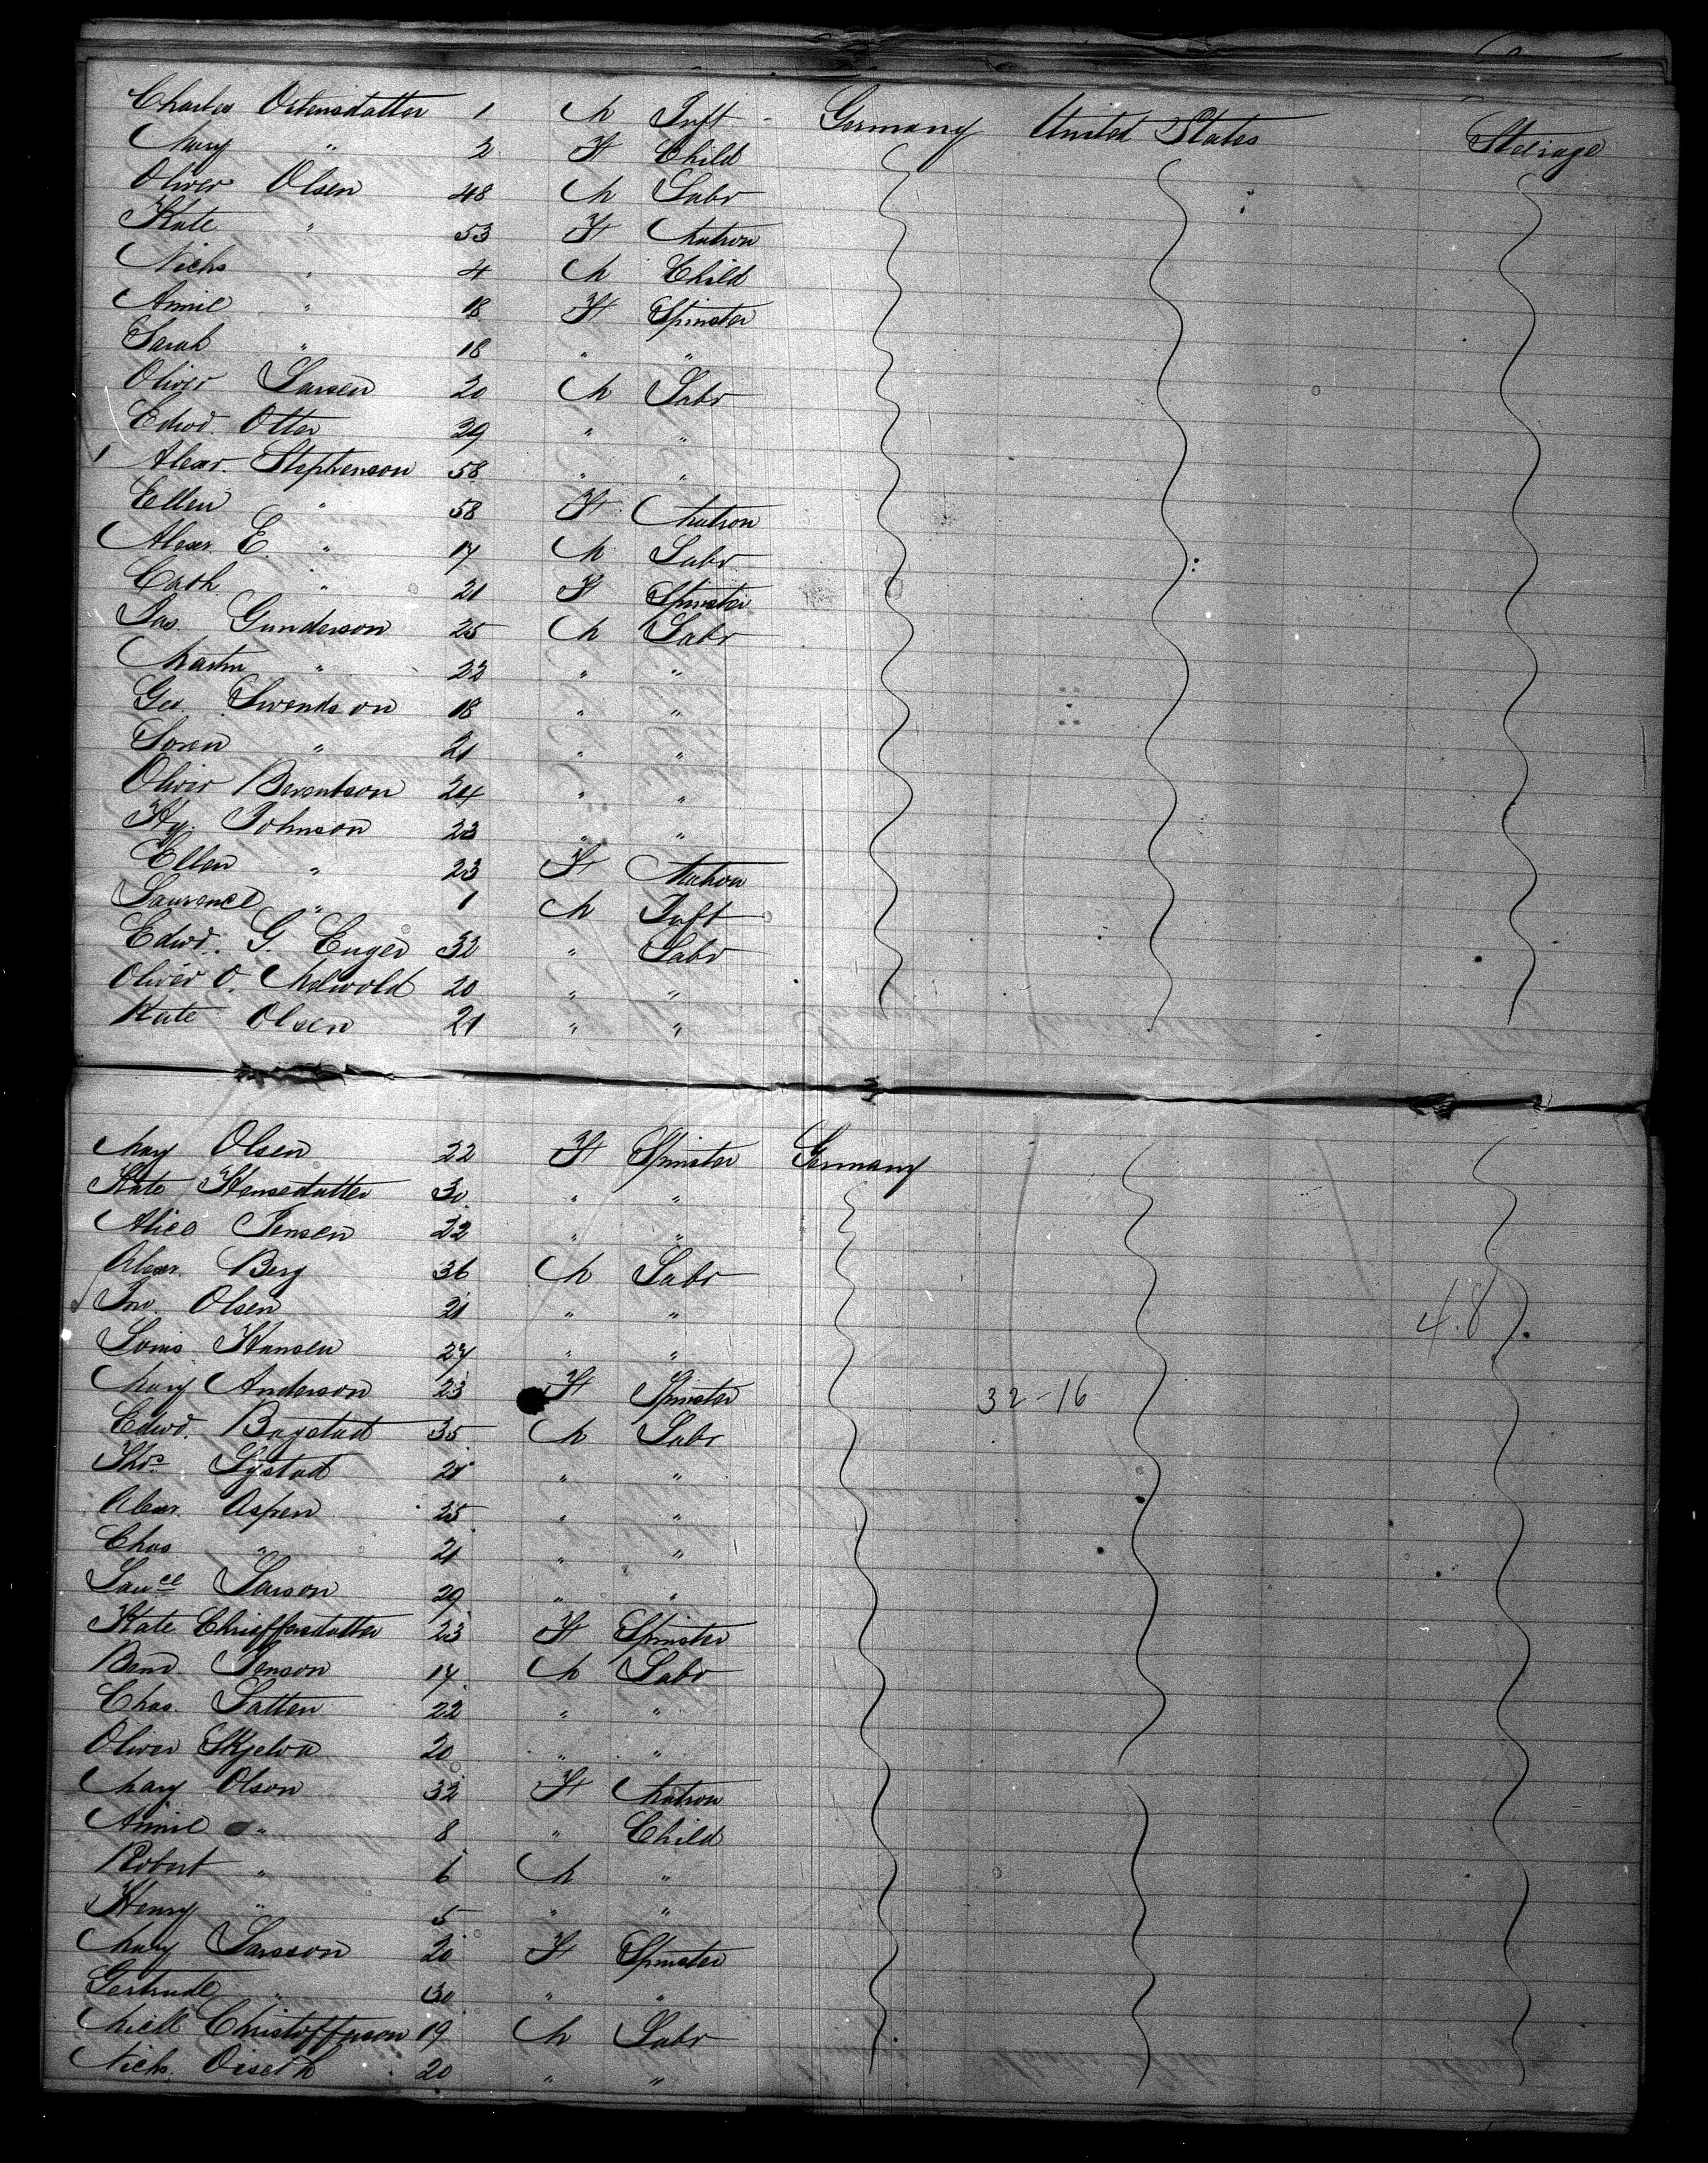 Charles Ostensdatter 1 M Inft - Germany United States Steerage
Mary " 2 F Child
Oliver Olsen 48 M Labr
Kate " 53 F Matron
Nichs " 4 M Child
Annie " 18 F Spinster
Sarah " 18 " "
Oliver Larsen 20 M Labr
Edwd. Otter 29 " "
Alexr. Stephenson 58 " "
Ellen " 58 F Matron
Alexr. E. " 17 M Labr
Cath " 21 F Spinster
Jas. Gunderson 25 M Labr
Martin " 22 " "
Geo. Swendson 18 " "
Soren " 21 " "
Oliver Berentson 24 " "
Hy. Johnson 23 " "
Ellen " 23 F Matron
Laurence " 1 M Inft
Edwd. G. Enger 32 " Labr
Oliver O. 20 " "
Kate Olsen 21 " "
Mary Olsen 22 F Spinster Germany
Kate Hensedatter 30 " "
Alice Jensen 22 " "
Alexr. Berg 36 M Labr
Jno. Olsen 21 " " 48
Louis Hansen 27 " "
Mary Anderson 23 F Spinster 32-16
Edwd. Bagstad 35 M Labr
Thos. Systad 21 " "
Alexr. Aspen 25 " "
Chas " 21 " "
Laurce Larson 29 " "
Kate Christfersdatter 23 F Spinster
Bend Jenson 17 M Labr
Chas. Satten 22 " "
Oliver Skjelva 20 " "
Mary Olson 32 F Matron
Annie " 8 " Child
Robert " 6 M "
Henry " 5 " "
Mary Larsson 20 F Spinster
Gertrude " 30 " "
Michl Christofferson 19 M Labr
Nichs. Oiseth 20 " "